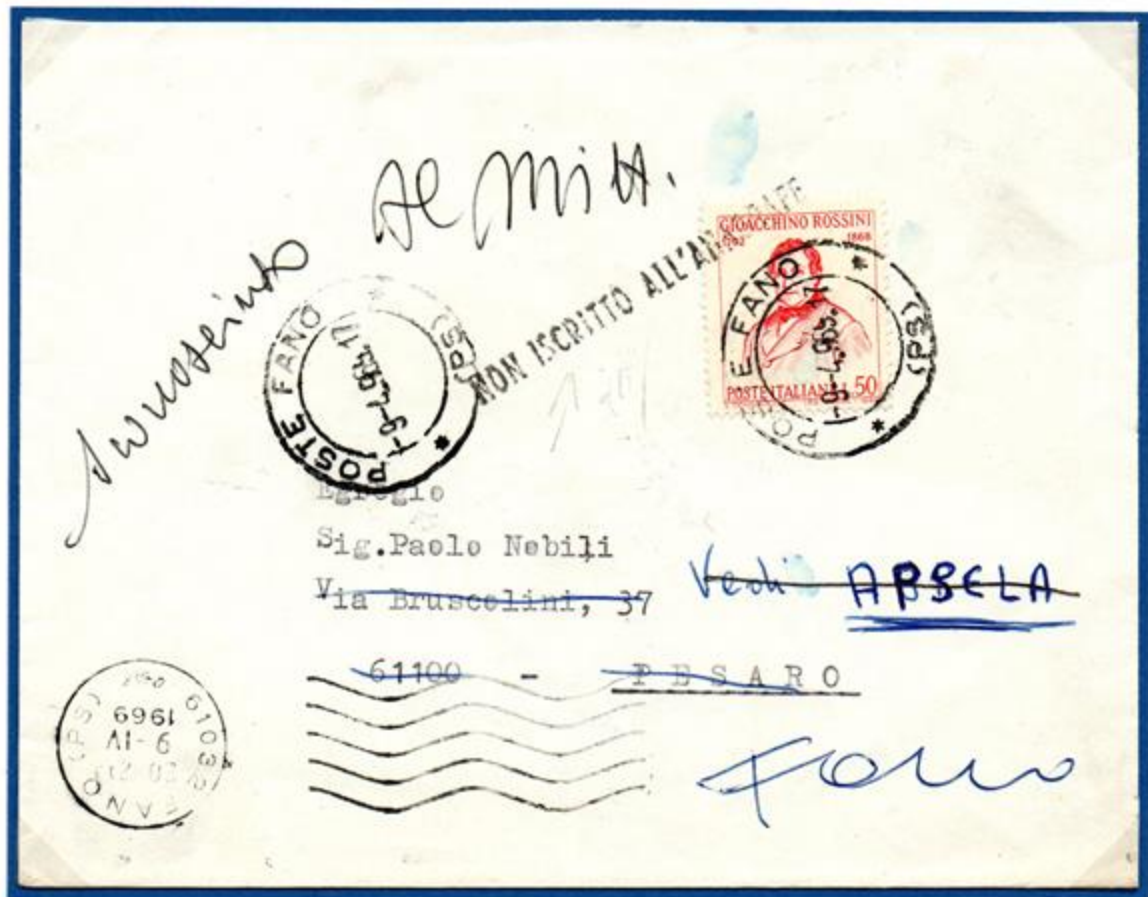 Al Mitt.
Sconosciuto
NON ISCRITTO ALL'ANAGRAFE
GIOACCHINO ROSSINI
1792 1868
POSTE ITALIANE L 50
POSTE FANO (PS)
POSTE FANO (PS)
Egregio
Sig.Paolo Nobili
Via Bruscolini, 37
Vedi
61100 - PESARO
Fano
61032 FANO (PS)
9-IV
1969